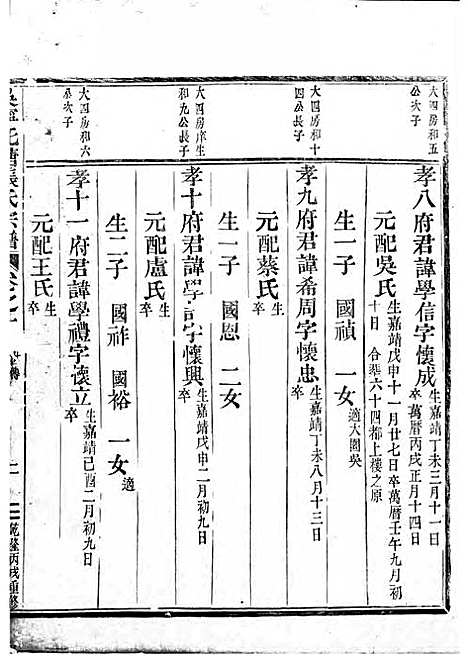 大四房和五
公次子
孝八府君諱學信字懷成
生嘉靖丁未三月十一日
卒萬曆丙戌正月十四日
元配吳氏
生嘉靖戊申十一月廿七日卒萬曆壬午九月初
十日 合塟六十四都上樓之原
生一子 國禎 一女
適大園吳
大四房和十
四公長子
孝九府君諱希周字懷忠
生嘉靖丁未八月十三日
卒
元配蔡氏
生
卒
生一子
大四房庠生
和九公長子
孝十府君諱學詩字懷興
生嘉靖戊申二月初九日
卒
元配盧氏
生
卒
生一子 國恩 二女
大四房和六
公次子
孝十一府君諱學禮字懷立
生嘉靖己酉二月初九日
卒
元配王氏
生
卒
生二子 國祚 國裕 一女
適
張氏宗譜
乾隆丙戌重修